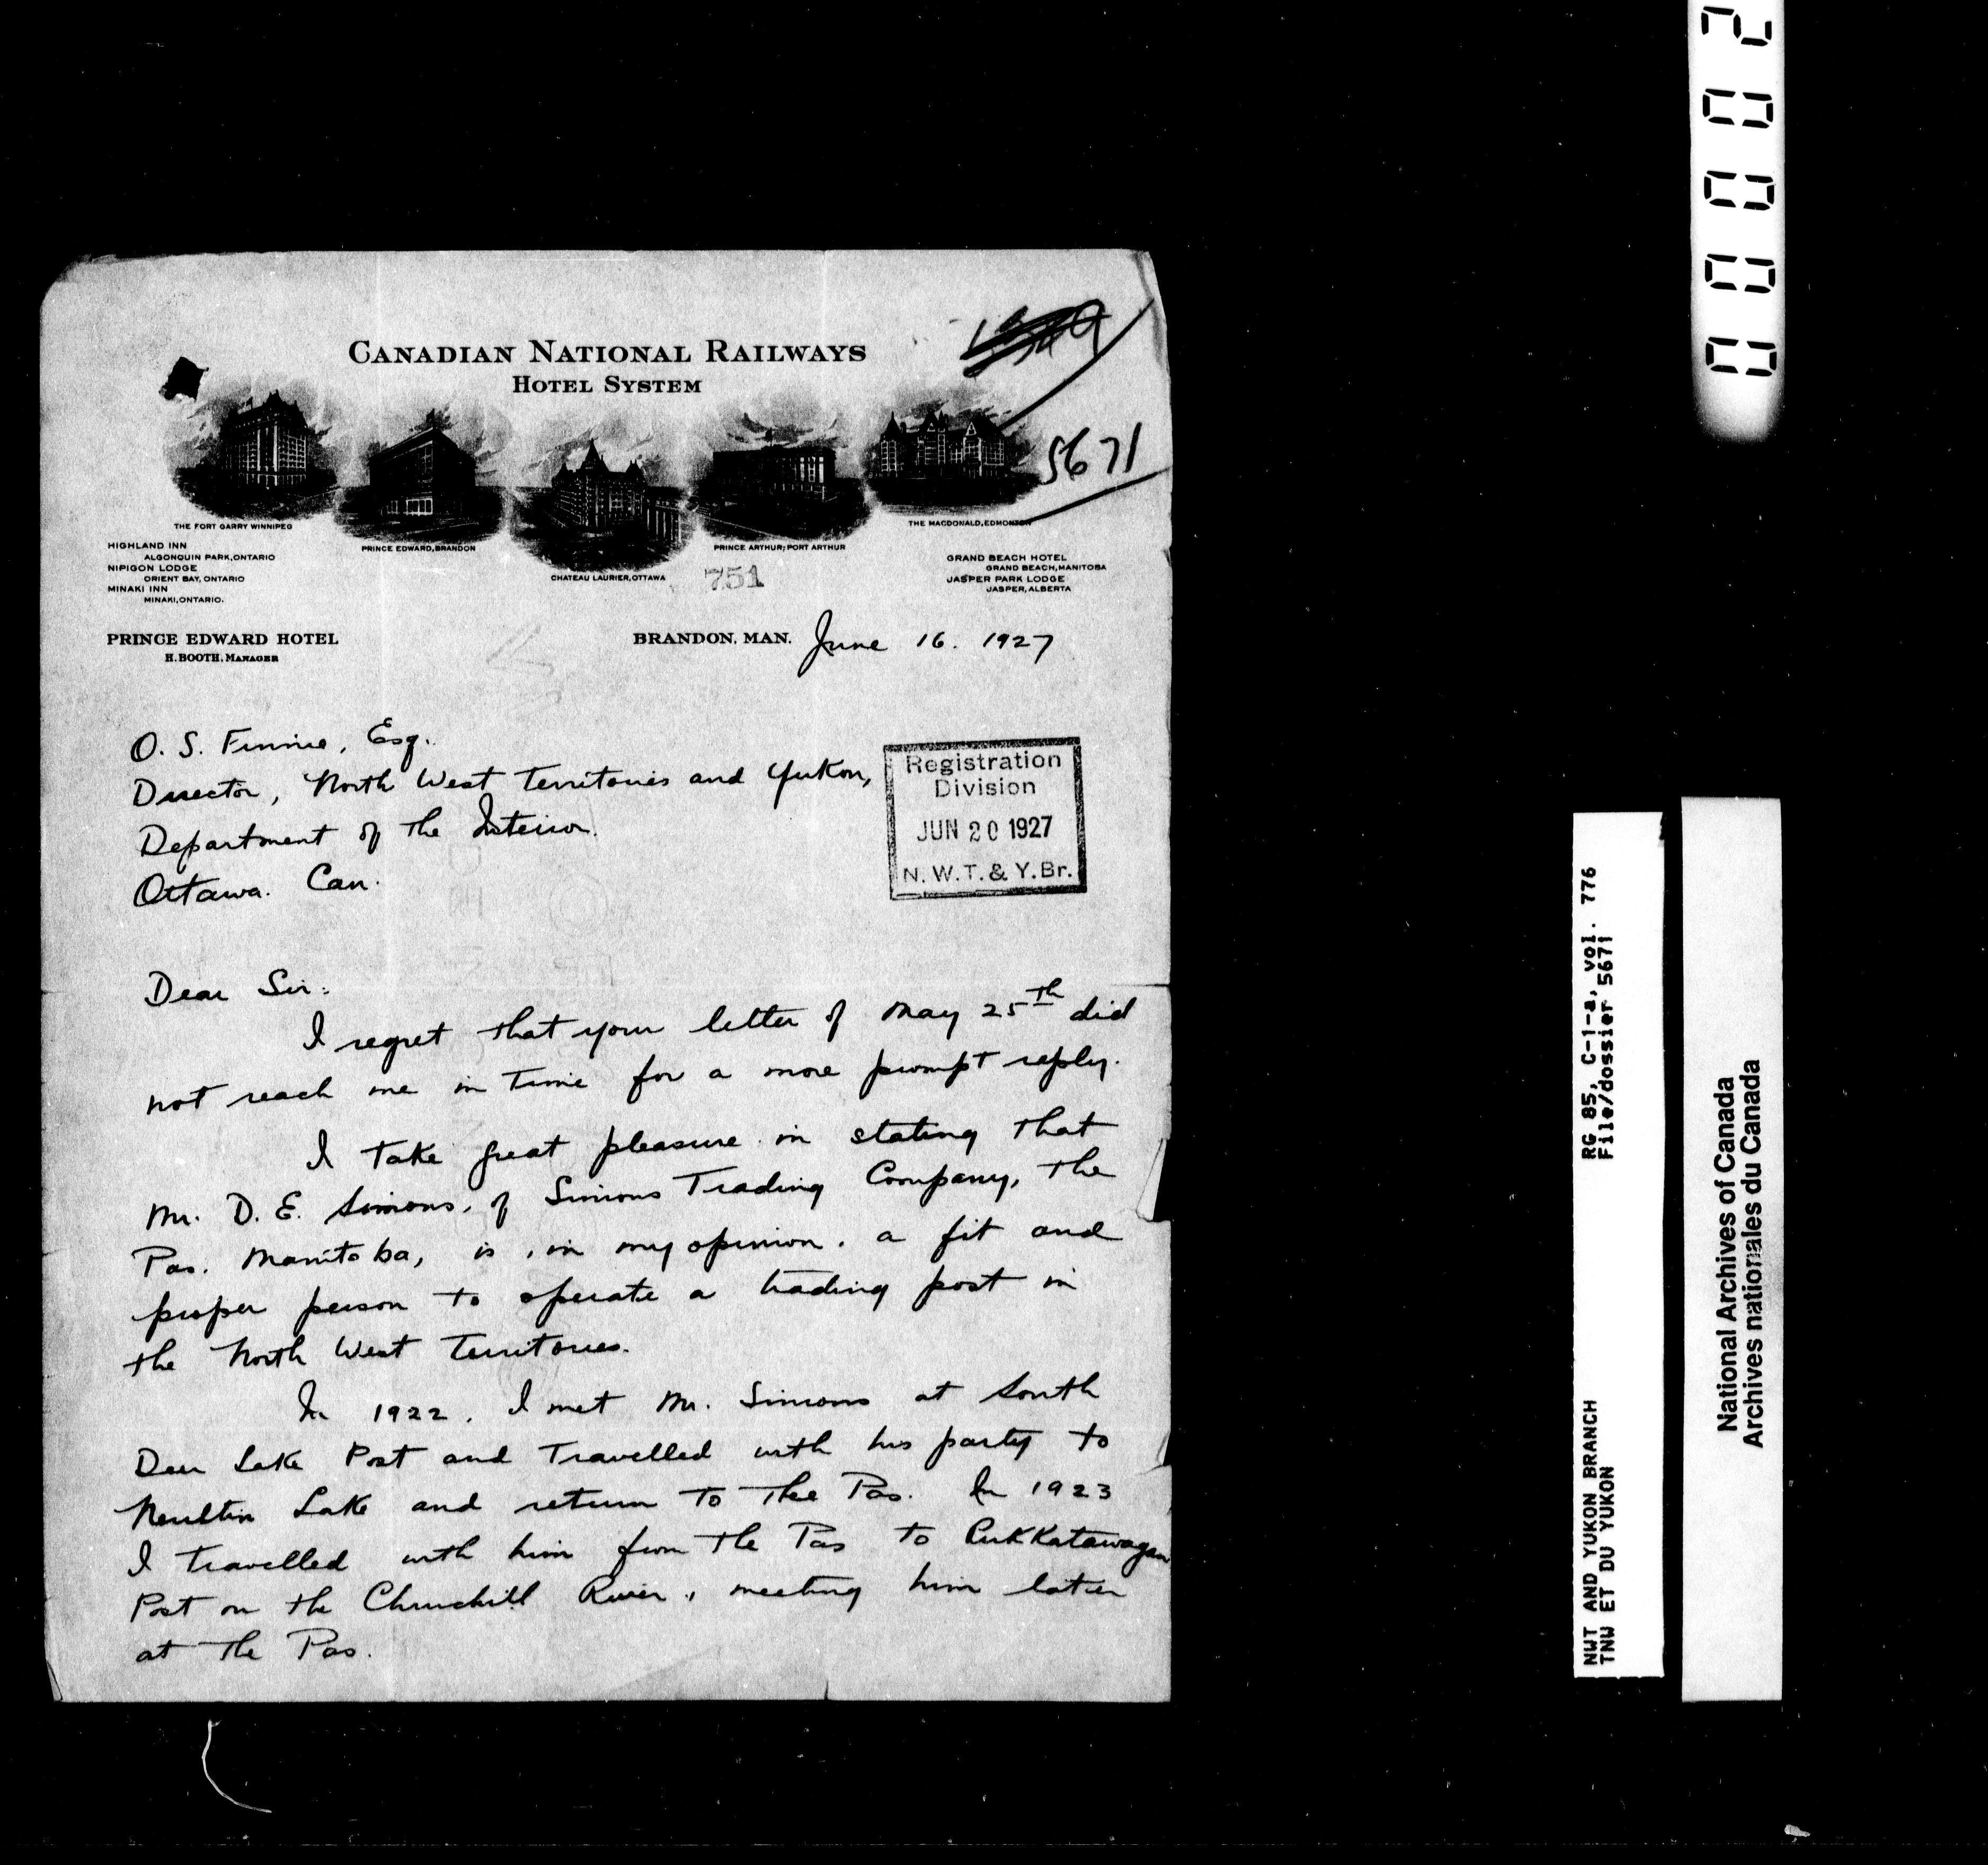 CANADIAN NATIONAL RAILWAYS
HOTEL SYSTEM
5671
THE FORT GARRY WINNIPEG
PRINCE EDWARD, BRANDON
CHATEAU LAURIER, OTTAWA
PRINCE ARTHUR, PORT ARTHUR
THE MACDONALD, EDMONTON
HIGHLAND INN
ALGONQUIN PARK, ONTARIO
NIPIGON LODGE
ORIENT BAY, ONTARIO
MINAKI INN
MINAKI, ONTARIO.
GRAND BEACH HOTEL
GRAND BEACH, MANITOBA
JASPER PARK LODGE
JASPER, ALBERTA
751
PRINCE EDWARD HOTEL
H. BOOTH, MANAGER
BRANDON, MAN. June 16. 1927
O. S. Finnie, Esq.
Director, North West Territories and Yukon,
Department of the Interior.
Ottawa. Can.
Registration
Division
JUN 20 1927
N. W. T. & Y. Br.
Dear Sir:
I regret that your letter of May 25th did
not reach me in time for a more prompt reply.
I take great pleasure in stating that
Mr. D. E. Simons, of Simons Trading Company, The
Pas. Manitoba, is, in my opinion, a fit and
proper person to operate a trading post in
the North West Territories.
In 1922, I met Mr. Simons at South
Deer Lake Post and travelled with his party to
Neultin Lake and return to The Pas. In 1923
I travelled with him from The Pas to Pukkatawagan
Post on the Churchill River, meeting him later
at The Pas.
00002
RG 85, C-1-a, vol. 776
File/dossier 5671
NWT AND YUKON BRANCH
TNW ET DU YUKON
National Archives of Canada
Archives nationales du Canada